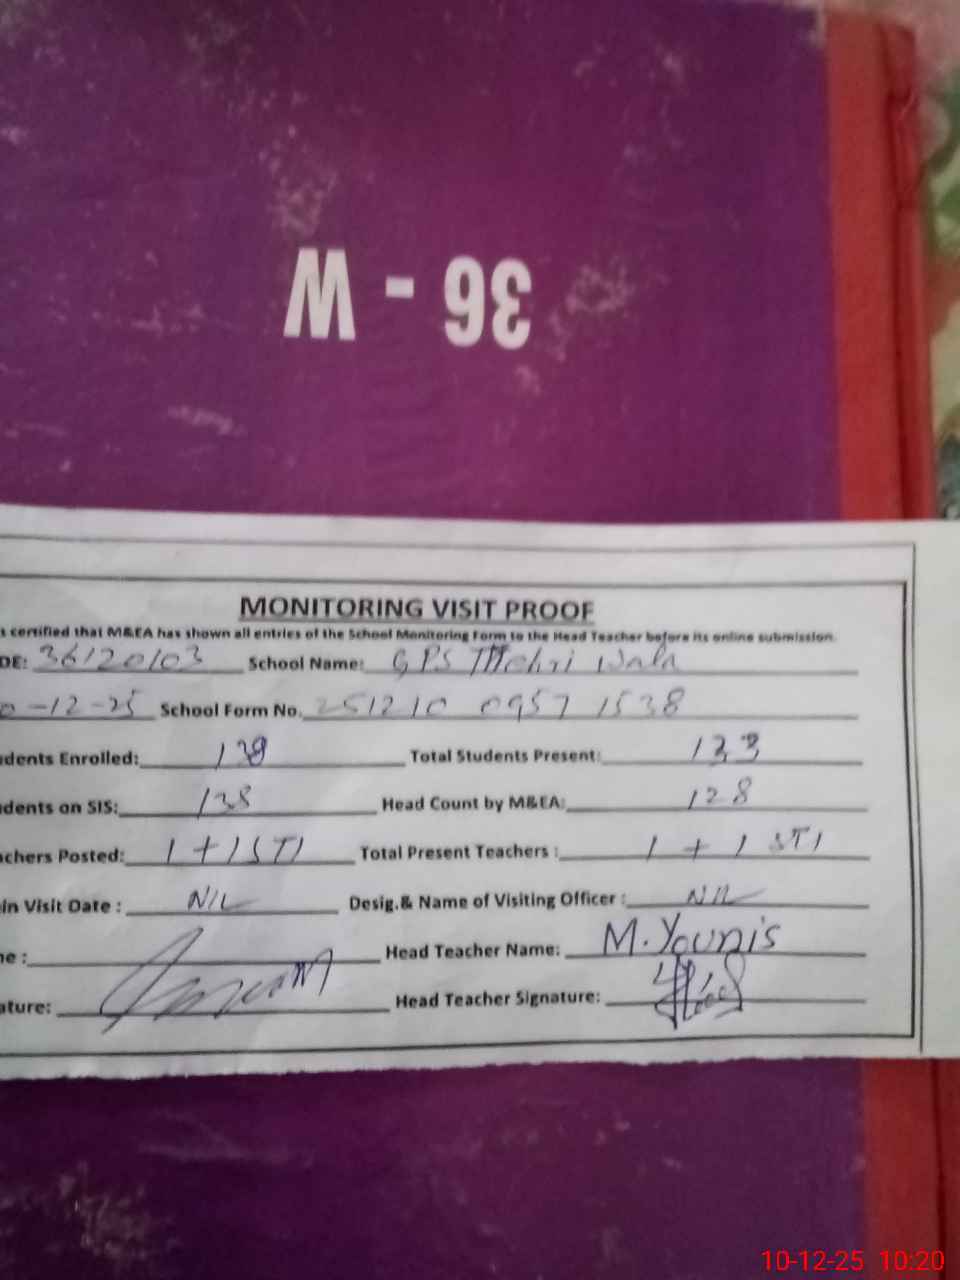 36 - W
MONITORING VISIT PROOF
s certified that M&EA has shown all entries of the School Monitoring Form to the Head Teacher before its online submission.
DE: 36120103 School Name: GPS Mohri Wala
0-12-25 School Form No. 251210 0957 1538
dents Enrolled: 138 Total Students Present: 133
dents on SIS: 138 Head Count by M&EA: 128
chers Posted: 1 + 1 STI Total Present Teachers : 1 + 1 STI
in Visit Date : NIL Desig.& Name of Visiting Officer : NIL
ne : Head Teacher Name: M. Younis
ature: Head Teacher Signature:
10-12-25 10:20